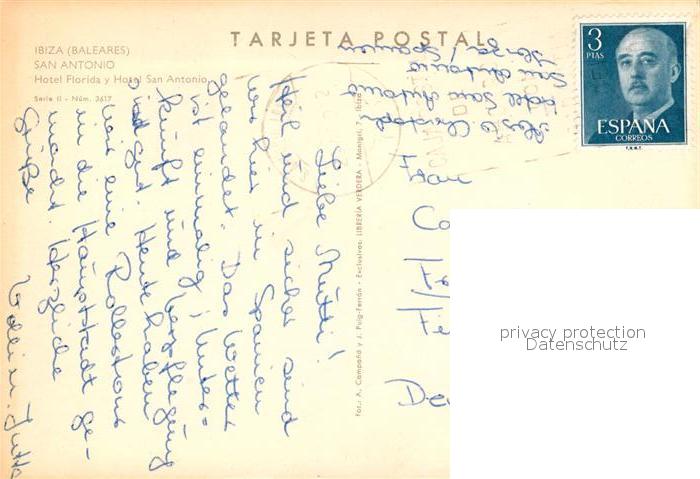 TARJETA POSTAL
IBIZA (BALEARES)
SAN ANTONIO
Hotel Florida y Hotel San Antonio
Serie II - Núm. 3617
3
PTAS
ESPAÑA
CORREOS
F.N.M.T.
Christoph
Hotel San Antonio
San Antonio
Ibiza / Spanien
Liebe Mutti!
Heil und sicher sind
wir hier in Spanien
gelandet. Das Wetter
ist einmalig, Unter=
kunft und Verpflegung
sind gut. Heute haben
wir eine Rollertour
in die Hauptstadt ge-
macht. Herzliche
Grüße
u. Jutta
Fot.: A. Campañá y J. Puig-Ferrán - Exclusivas: LIBRERIA VERDERA - Montgri, 7 - Ibiza
Frau
privacy protection
Datenschutz